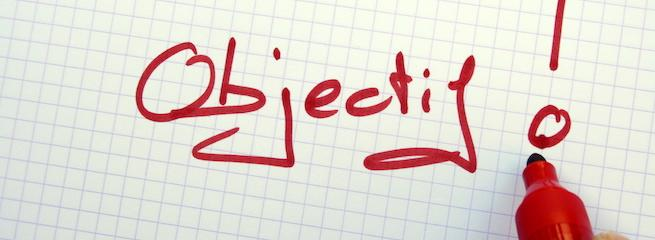 Objectif !